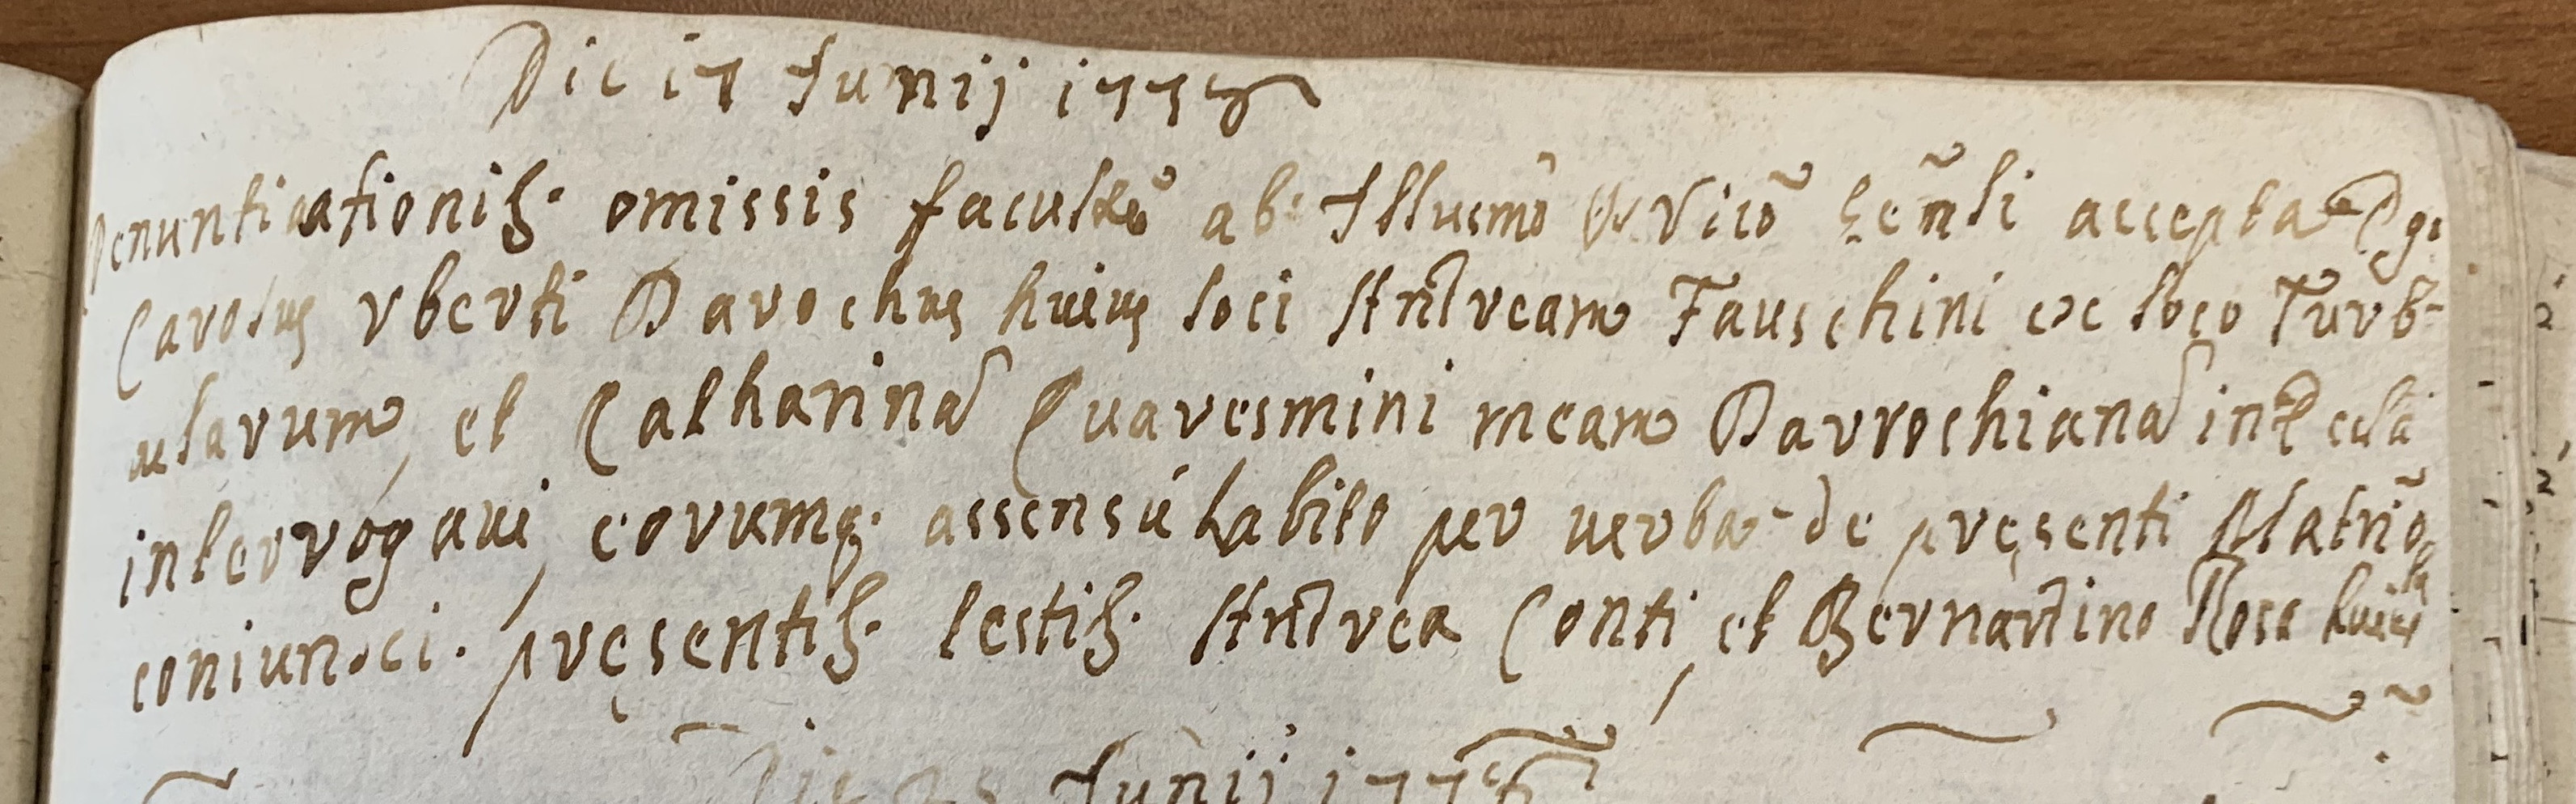 Die 17 Junij 1778
Denuntiationib. omissis facultẽ ab Illusmõ Vicõ Gẽnli accepta Ego
Carolus Uberti Parochus huius loci Andream Fauschini ex loco Turb-
ularum, et Catharinã Quaresmini meam Parrochianã in ecla
interrogaui, eorumq. assensú habito per uerba de pręsenti Matriõ
coniunxi. pręsentib. testib. Andrea Conti, et Bernardino Rosa huius
Die 25 Junij 1778